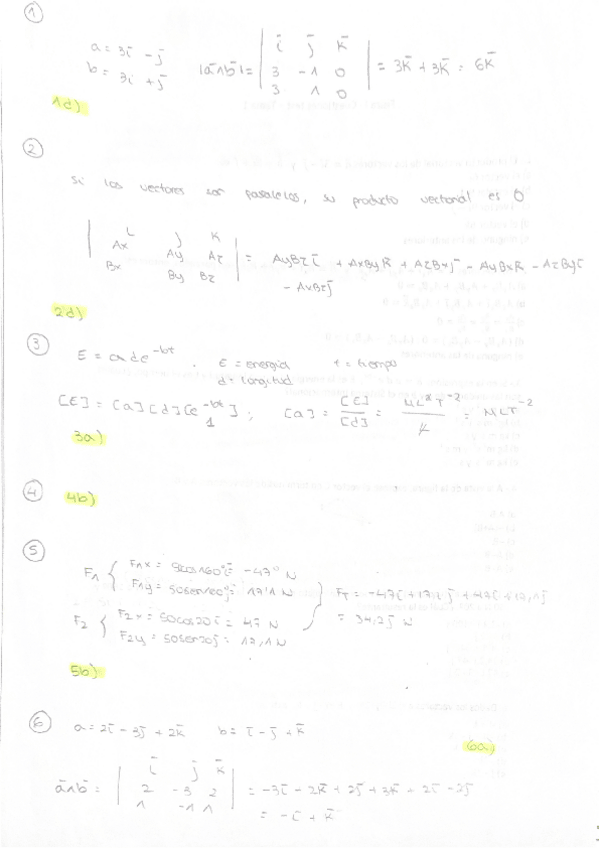 1
a = 3i̅ - j̅
b = 3i + j̅
|a̅∧b̅| = | i̅ j̅ k̅ | = 3k̅ + 3k̅ = 6k̅
3 -1 0
3 1 0
1d)
2
si los vectores son paralelos, su producto vectorial es 0
| i j k
Ax Ay Az
Bx By Bz | = AyBzi̅ + AxByk̅ + AzBxj̅ - AyBxk̅ - AzByi̅
- AxBzj̅
2d)
3
E = a d e^-bt . E = energía t = tiempo
d = longitud
[E] = [a][d][e^-bt] ; [a] = [E]/[d] = ML²T^-2/L = MLT^-2
1
3a)
4 4b)
5
F1 { F1x = 50cos160°i̅ = -47i̅ N
F1y = 50sen160°j̅ = 17'1 N
FT = -47i̅ + 17.1j̅ + 47i̅ + 17,1j̅
= 34.2j̅ N
F2 { F2x = 50cos20i̅ = 47 N
F2y = 50sen20j̅ = 17,1 N
5b)
6
a = 2i̅ - 3j̅ + 2k̅ b = i̅ - j̅ + k̅
6a)
a̅∧b̅ = | i̅ j̅ k̅
2 -3 2
1 -1 1 | = -3i̅ - 2k̅ + 2j̅ + 3k̅ + 2i̅ - 2j̅
= -i̅ + k̅